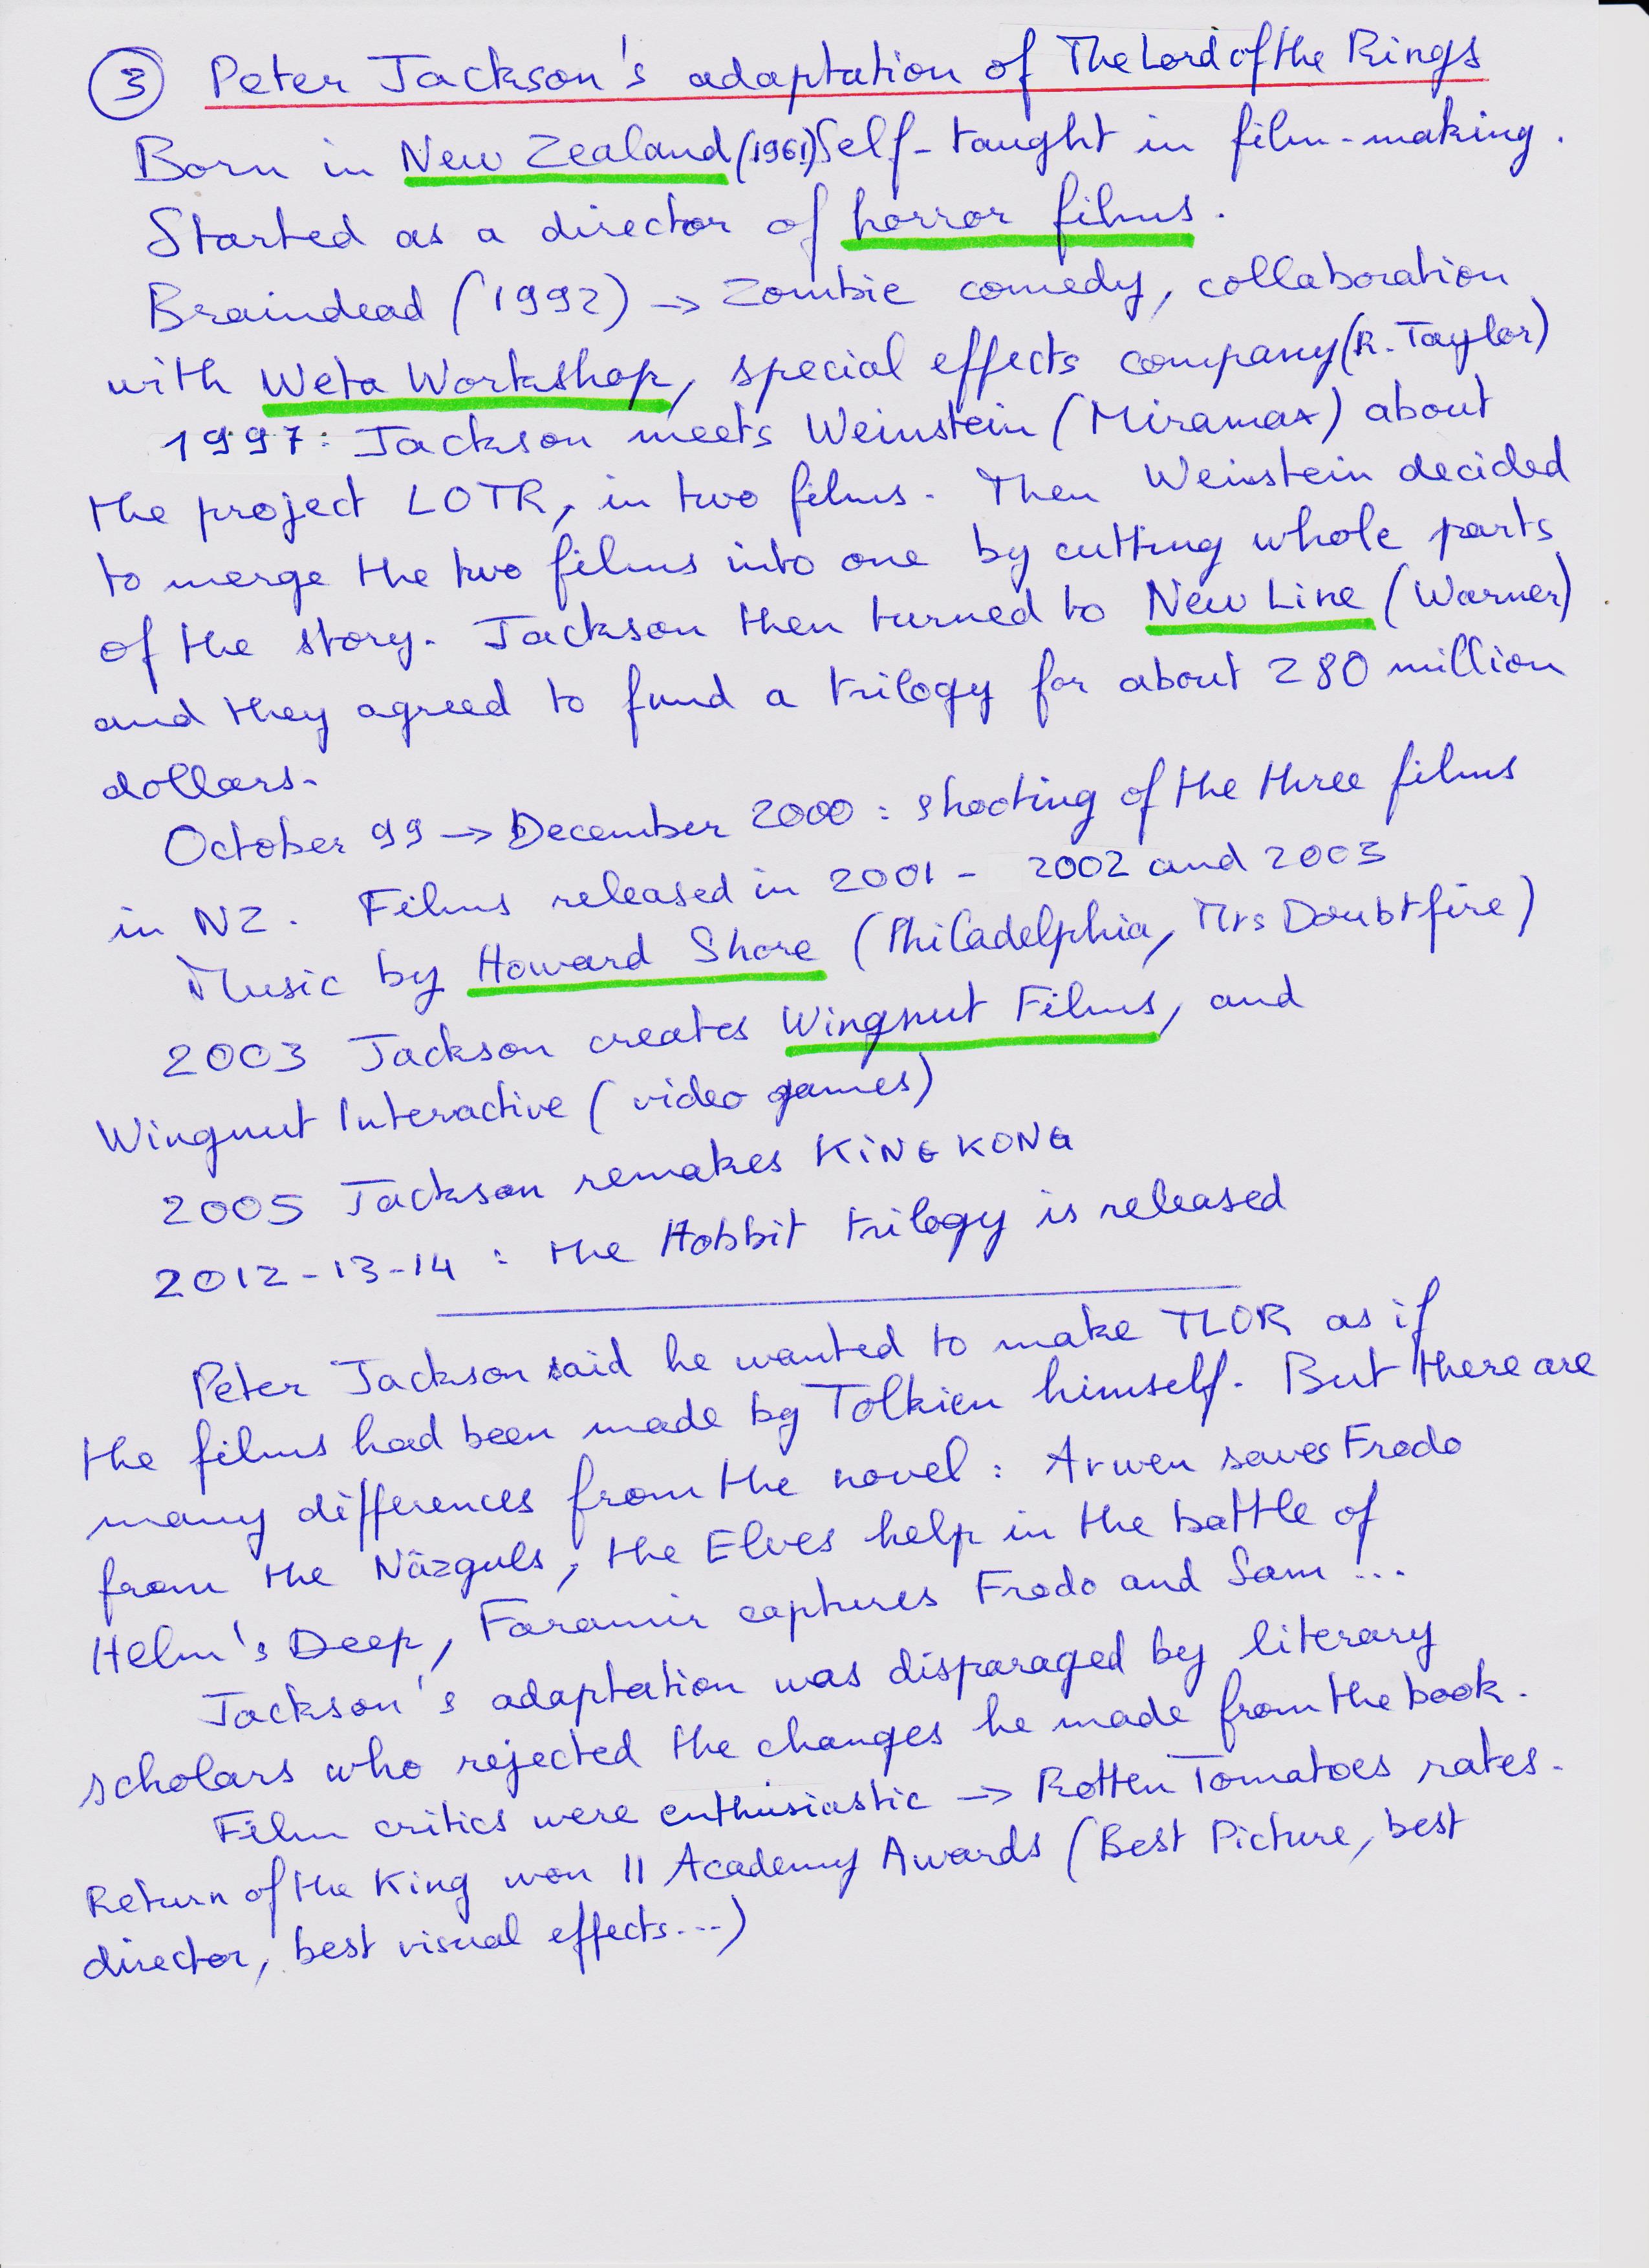 ③ Peter Jackson's adaptation of The Lord of the Rings
Born in New Zealand (1961) Self-taught in film-making.
Started as a director of horror films.
Braindead (1992) → Zombie comedy, collaboration
with Weta Workshop, special effects company (R. Taylor)
1997: Jackson meets Weinstein (Miramax) about
the project LOTR, in two films. Then Weinstein decided
to merge the two films into one by cutting whole parts
of the story. Jackson then turned to New Line (Warner)
and they agreed to fund a trilogy for about 280 million
dollars.
October 99 → December 2000 : shooting of the three films
in NZ. Films released in 2001 - 2002 and 2003
Music by Howard Shore (Philadelphia, Mrs Doubtfire)
2003 Jackson creates Wingnut Films, and
Wingnut Interactive (video games)
2005 Jackson remakes KING KONG
2012-13-14 : the Hobbit trilogy is released
Peter Jackson said he wanted to make TLOR as if
the films had been made by Tolkien himself. But there are
many differences from the novel : Arwen saves Frodo
from the Nâzguls, the Elves help in the battle of
Helm's Deep, Faramir captures Frodo and Sam !...
Jackson's adaptation was disparaged by literary
scholars who rejected the changes he made from the book.
Film critics were enthusiastic → Rotten Tomatoes rates.
Return of the King won 11 Academy Awards (Best Picture, best
director, best visual effects...)